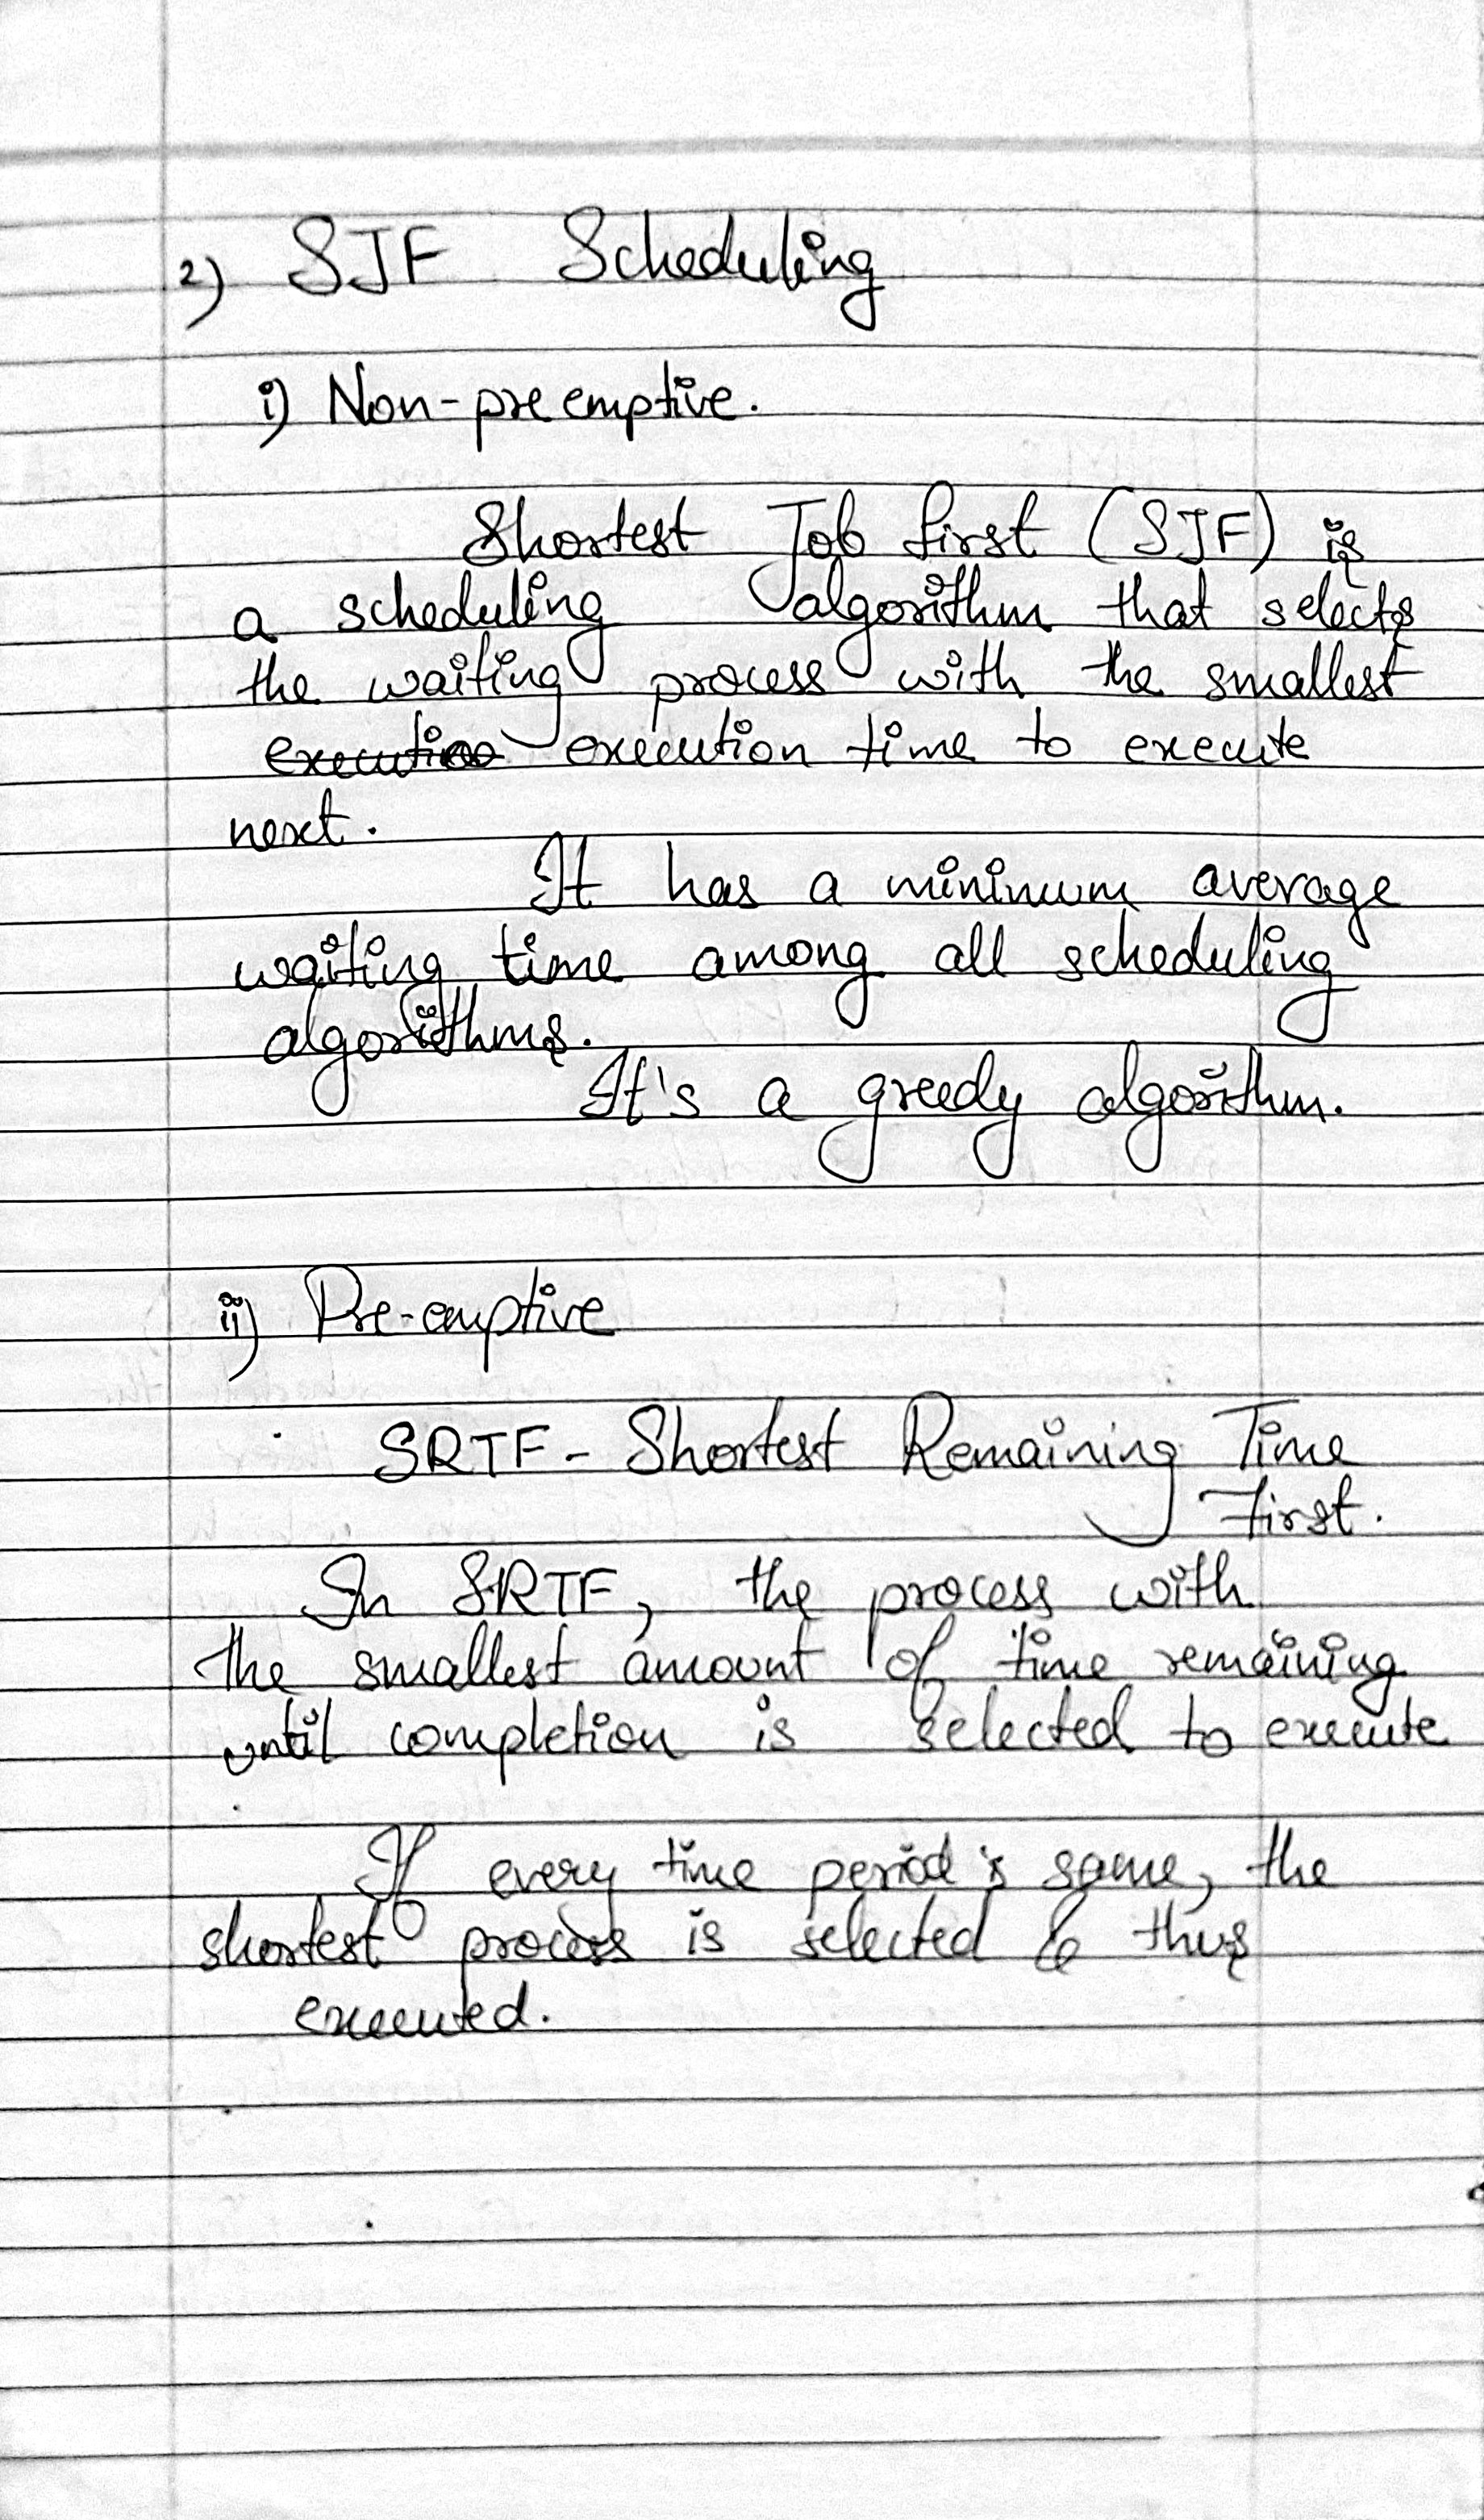 2) SJF Scheduling
i) Non-preemptive.
Shortest Job first (SJF) is
a scheduling algorithm that selects
the waiting process with the smallest
execution execution time to execute
next.
It has a minimum average
waiting time among all scheduling
algorithms.
It's a greedy algorithm.
ii) Pre-emptive
SRTF - Shortest Remaining Time
First.
In SRTF, the process with
the smallest amount of time remaining
until completion is selected to execute
.
If every time period is same, the
shortest process is selected & thus
executed.